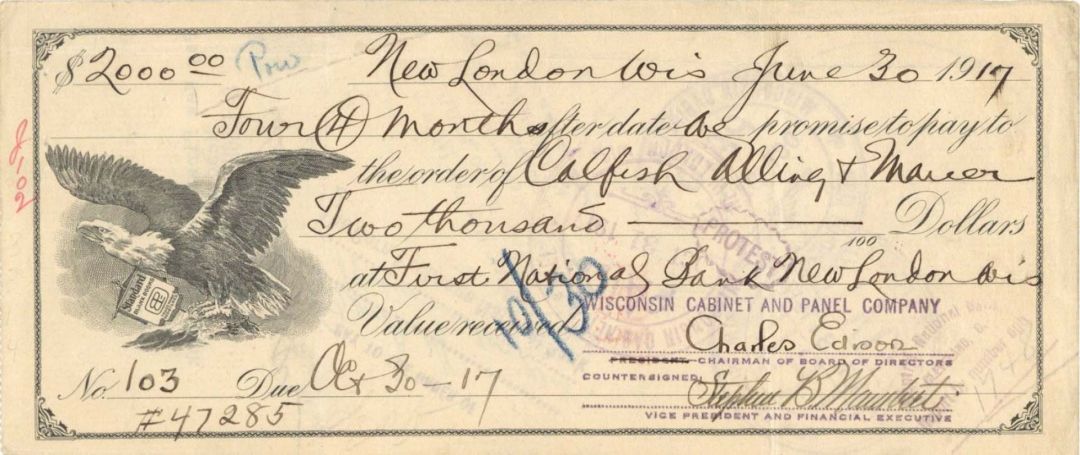 $2000.00 New London Wis June 30 1917
Four (4) Months after date we promise to pay to
the order of Calfish Alling & Maurer
Two thousand Dollars
100
at First National Bank New London Wis
Value received
WISCONSIN CABINET AND PANEL COMPANY
Charles Edison
PRESIDENT CHAIRMAN OF BOARD OF DIRECTORS
COUNTERSIGNED
Stephen B. Mambert
VICE PRESIDENT AND FINANCIAL EXECUTIVE
No. 103 Due Oct 30-17
#47285
10/30
Standard
PROTEST
20-2